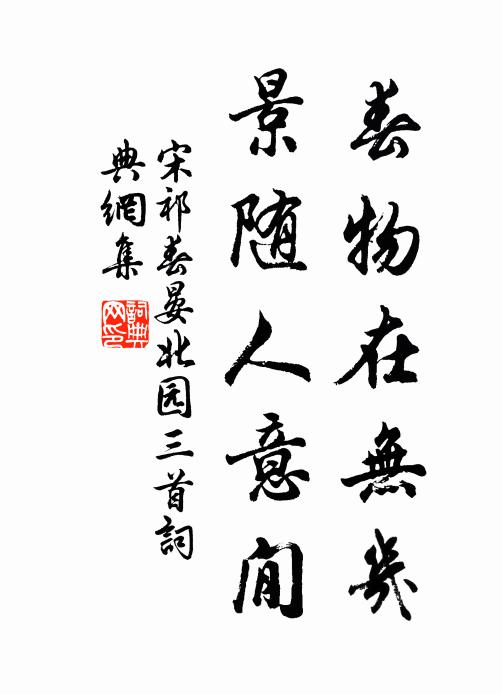 春物在無幾
景随人意閒
宋祁春晏北园三首詞
典網集
詞典
网印